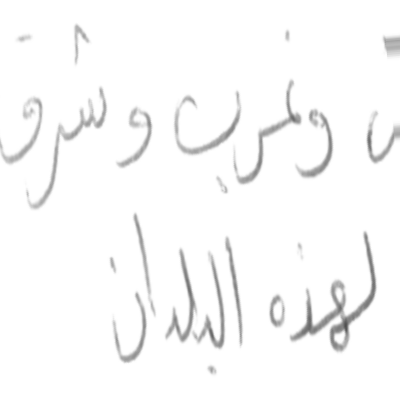 وغرب وشرق
لهذه البلدان